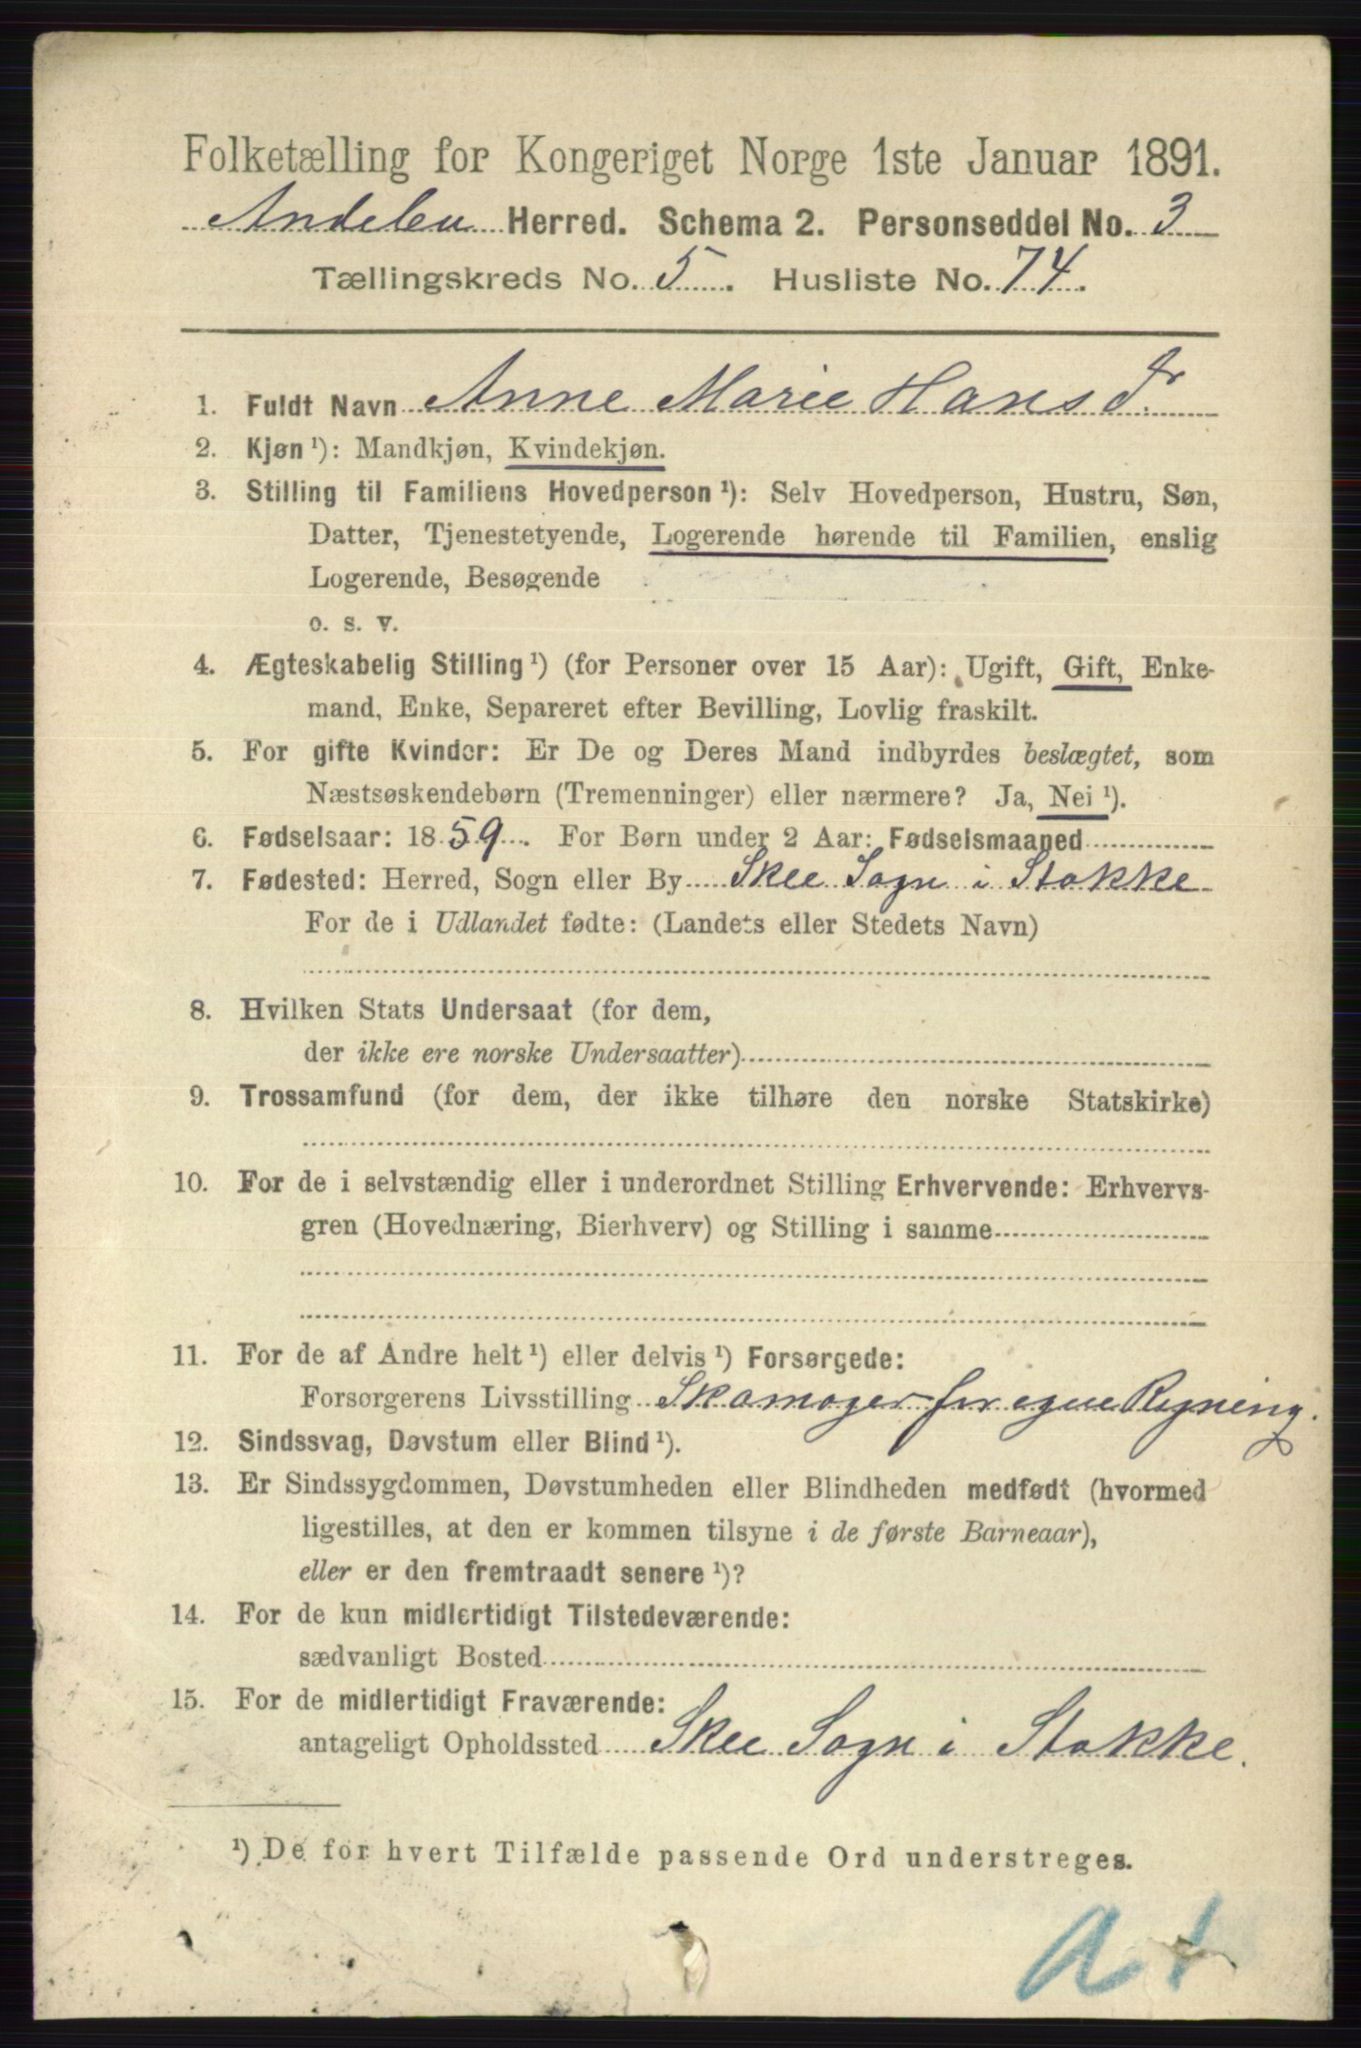 Folketælling for Kongeriget Norge 1ste Januar 1891.
Andebu Herred. Schema 2. Personseddel No. 3
Tællingskreds No. 5. Husliste No. 74.
1. Fuldt Navn Anne Marie Hansdr.
2. Kjøn ¹): Mandkjøn, Kvindekjøn.
3. Stilling til Familiens Hovedperson ¹): Selv Hovedperson, Hustru, Søn,
Datter, Tjenestetyende, Logerende hørende til Familien, enslig
Logerende, Besøgende
o. s. v.
4. Ægteskabelig Stilling ¹) (for Personer over 15 Aar): Ugift, Gift, Enke-
mand, Enke, Separeret efter Bevilling, Lovlig fraskilt.
5. For gifte Kvinder: Er De og Deres Mand indbyrdes beslægtet, som
Næstsøskendebørn (Tremenninger) eller nærmere? Ja, Nei ¹).
6. Fødselsaar: 1859. For Børn under 2 Aar: Fødselsmaaned
7. Fødested: Herred, Sogn eller By Skee Sogn i Stokke
For de i Udlandet fødte: (Landets eller Stedets Navn)
8. Hvilken Stats Undersaat (for dem,
der ikke ere norske Undersaatter)
9. Trossamfund (for dem, der ikke tilhøre den norske Statskirke)
10. For de i selvstændig eller i underordnet Stilling Erhvervende: Erhvervs-
gren (Hovednæring, Bierhverv) og Stilling i samme
11. For de af Andre helt ¹) eller delvis ¹) Forsørgede:
Forsørgerens Livsstilling Skomager for egne Regning.
12. Sindssvag, Døvstum eller Blind ¹).
13. Er Sindssygdommen, Døvstumheden eller Blindheden medfødt (hvormed
ligestilles, at den er kommen tilsyne i de første Barneaar),
eller er den fremtraadt senere ¹)?
14. For de kun midlertidigt Tilstedeværende:
sædvanligt Bosted
15. For de midlertidigt Fraværende:
antageligt Opholdssted Skee Sogn i Stokke.
¹) De for hvert Tilfælde passende Ord understreges.
a t